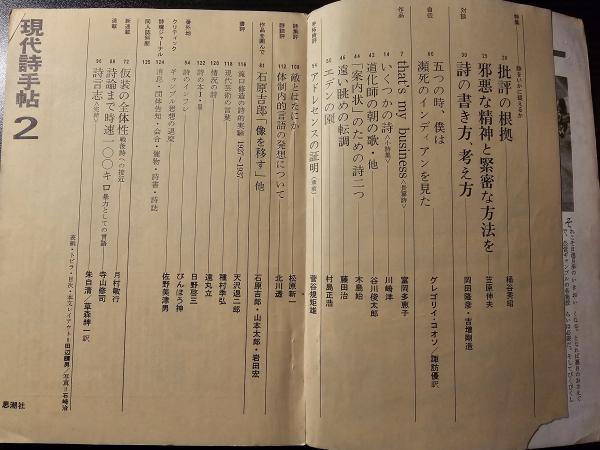 特集
詩をいかに鍛えるか
20 批評の根拠 桶谷秀昭
25 邪悪な精神と緊密な方法を 笠原伸夫
対談
30 詩の書き方、考え方 岡田隆彦・吉増剛造
自伝
五つの時、僕は
66 瀕死のインディアンを見た グレゴリイ・コオソ/諏訪優訳
作品
7 that's my business 〈長篇詩〉 富岡多恵子
14 いくつかの詩 〈小詩集〉 川崎洋
42 道化師の朝の歌・他 谷川俊太郎
44 「案内状」のための詩二つ 木島始
46 遠い眺めの転調 藤田治
50 エデンの園 村島正浩
アドレセンスの証明 菅谷規矩雄
詩集評
108 敵とはなにか 松原新一
詩誌評
112 体制内的言語の発想について 北川透
作品を囲んで
81 石原吉郎「像を移す」他 石原吉郎・山本太郎・岩田宏
書評
116 滝口修造の詩的実験 1927〜1937 天沢退二郎
118 現代芸術の言葉 種村季弘
120 情況の詩 遠丸立
122 詩の本1・Ⅱ 日野啓三
番外地
54 詩のインフレ ぴんぼう神
クリティック
ギャンブル思想の退廃 佐野美津男
詩壇ジャーナル
124 消息・団体告知・会合・催物・詩書・詩誌
同人誌味聞
125
新連載
72 仮装の全体性 戦後詩への接近 月村敏行
連載
88 詩論まで時速一〇〇キロ 暴力としての言語 寺山修司
96 詩言志 朱自清/草森紳一訳
表紙・トビラ・目次・本文レイアウト=田辺輝男/写真=石崎治
現代詩手帖2
思潮社